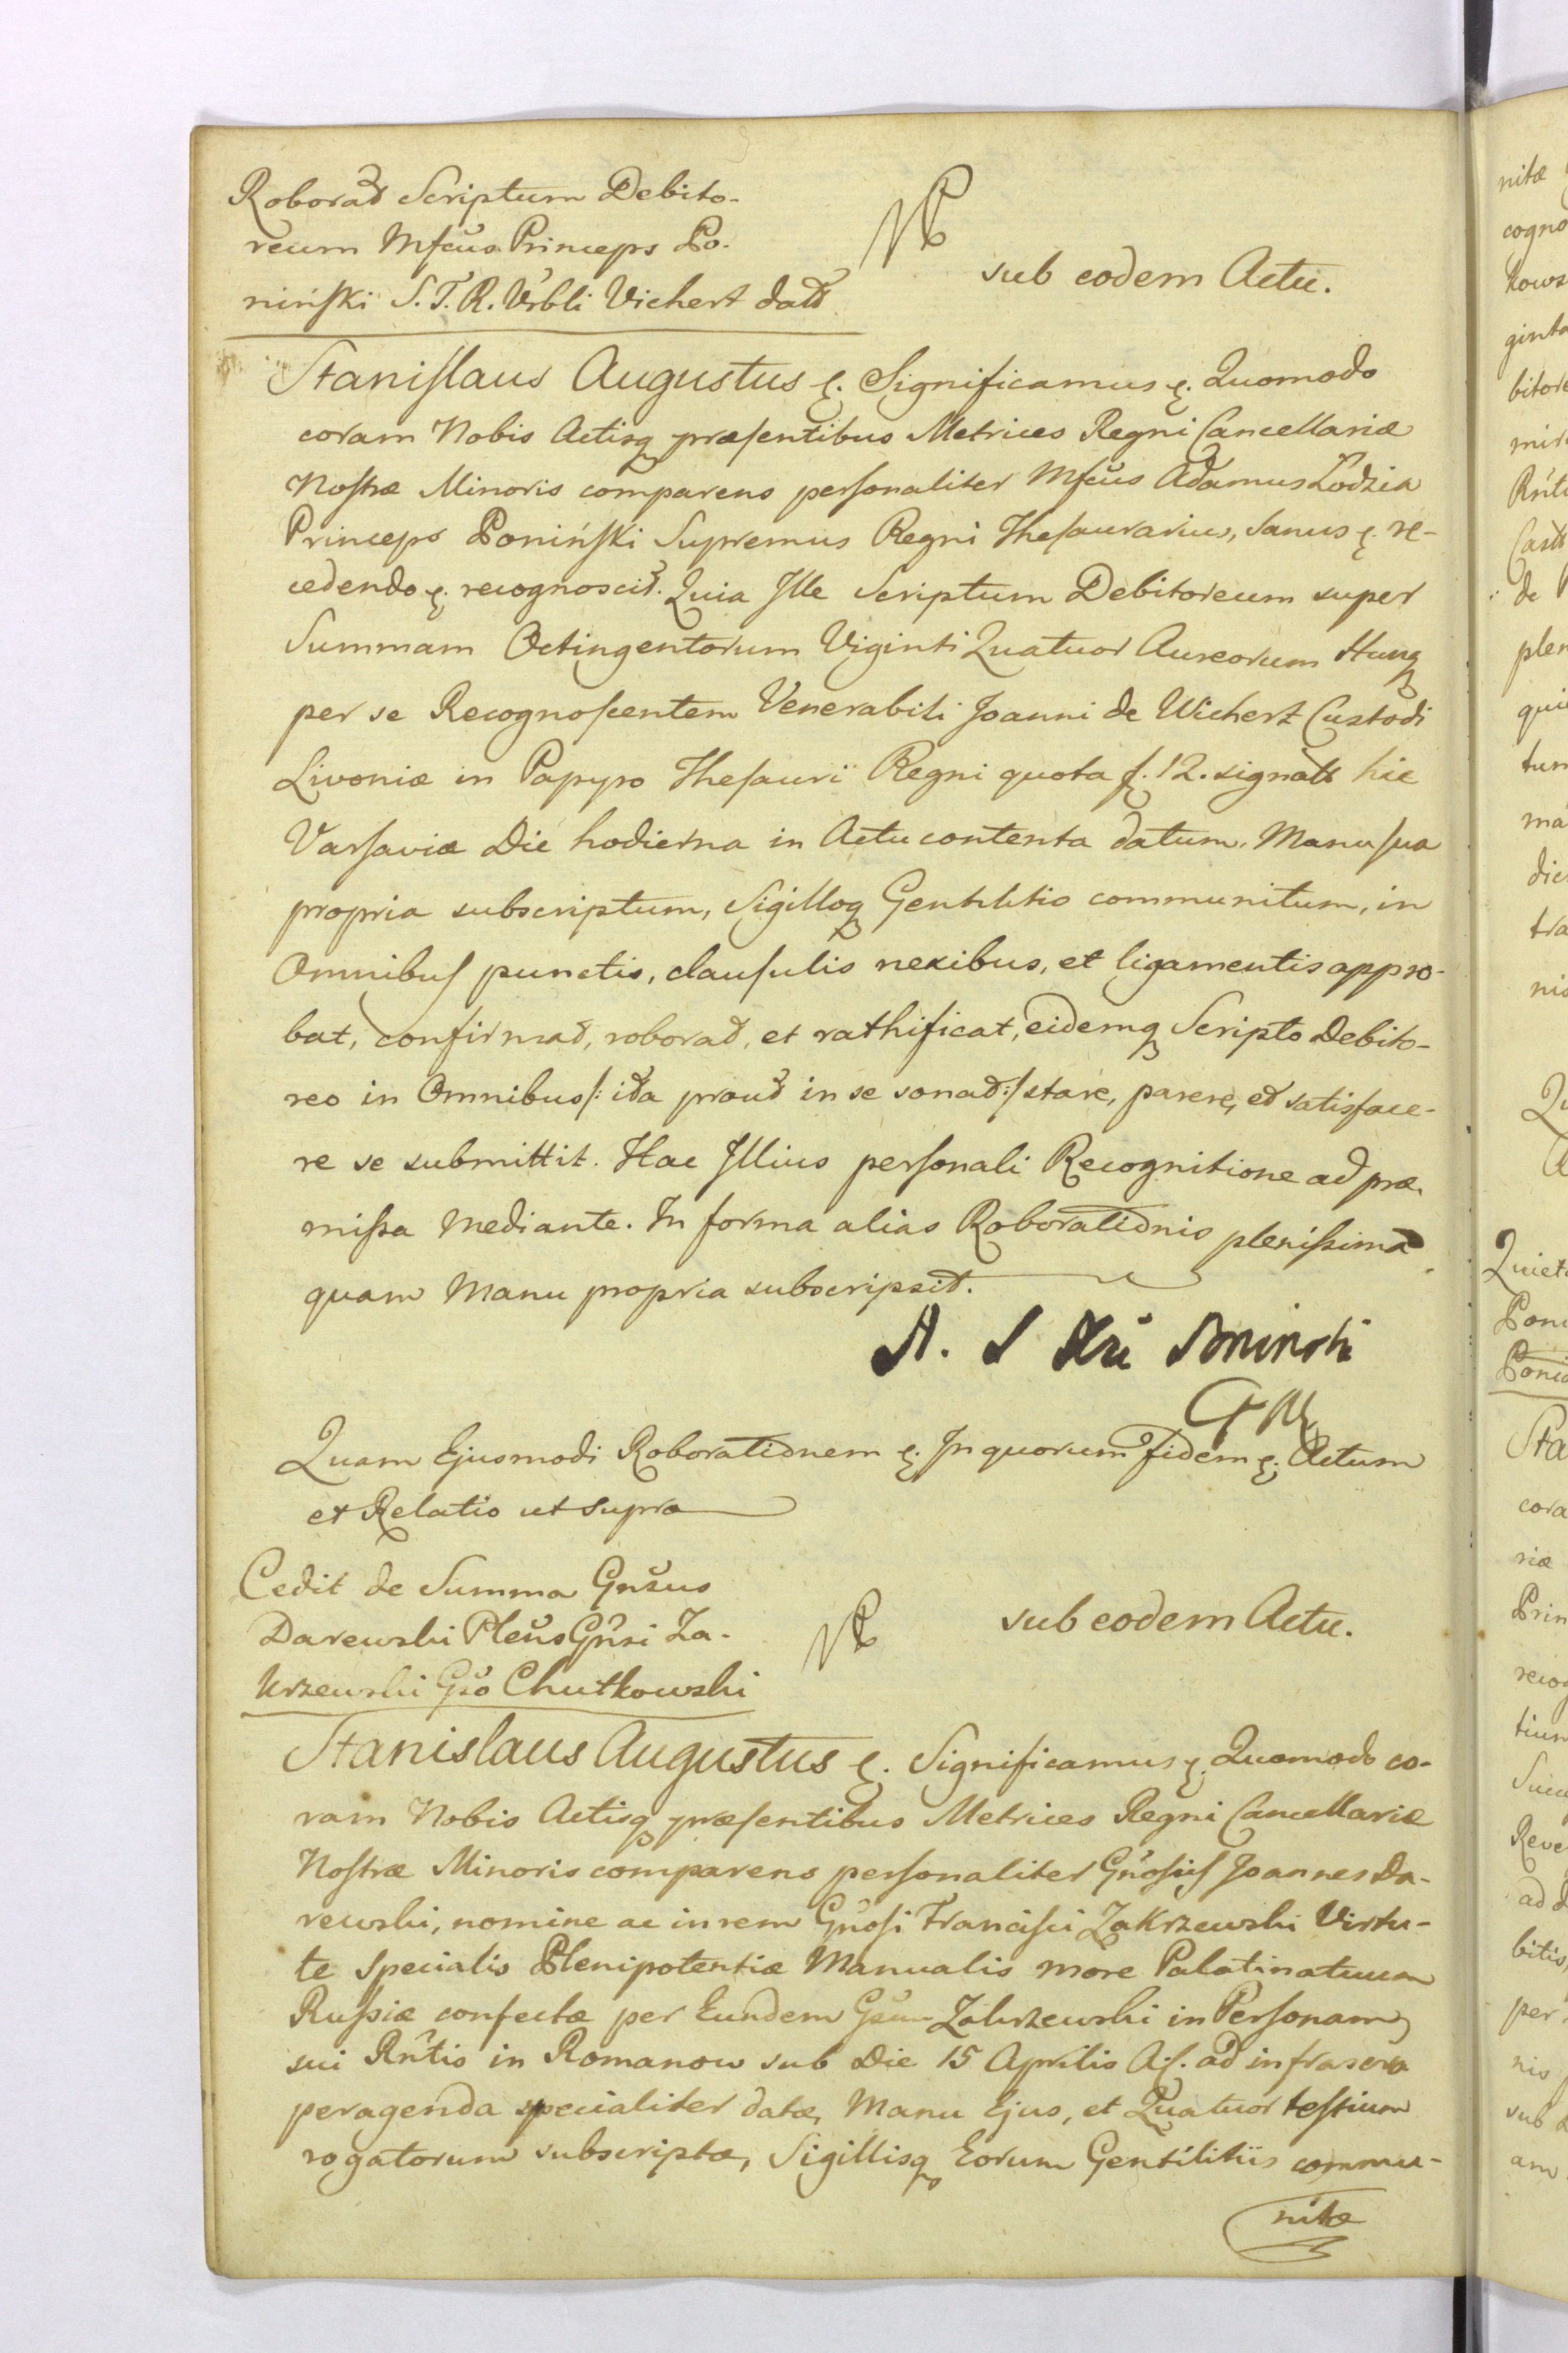 Roborat Scriptum Debito-
reum Mfcus Princeps Po-
niński S. T. R. Vrbli Vichert datt
sub eodem Actu.
Stanislaus Augustus &. Significamus &. Quomodo
coram Nobis Actisq præsentibus Metrices Regni Cancellariæ
Nostræ Minoris comparens personaliter Mfcus Adamus Lodzia
Princeps Poniński Supremus Regni Thesaurarius, sanus &. re-
cedendo &. recognoscit. Quia Ille Scriptum Debitoreum super
Summam Octingentorum Viginti Quatuor Aureorum Hung
per se Recognoscentem Venerabili Joanni de Wichert Custodi
Livoniæ in Papyro Thesauri Regni quota f. 12. signatt hic
Varsaviæ Die hodierna in Actu contenta datum. Manu sua
propria subscriptum, Sigilloq Gentilitio communitum, in
Omnibus punctis, clausulis nexibus, et ligamentis appro-
bat, confirmat, roborat, et rathificat, eidemq Scripto Debito-
reo in Omnibus /: ita prout in se sonat :/ stare, parere, et satisface-
re se submittit. Hac Illius personali Recognitione ad præ-
missa mediante. In forma alias Roborationis plenissima
quam Manu propria subscripsit.
Quam Ejusmodi Roborationem &. In quorum fidem &. Actum
et Relatio ut supra
Cedit de Summa Gnsus
Darewski Plenus Gnsi Za-
krzewski Gso Chutkowski
sub eodem Actu.
Stanislaus Augustus &. Significamus &. Quomodo co-
ram Nobis Actisq præsentibus Metrices Regni Cancellariæ
Nostræ Minoris comparens personaliter Gnosus Joannes Da-
rewski, nomine ac in rem Gnosi Francisci Zakrzewski Virtu-
te Specialis Plenipotentiæ Manualis more Palatinatuum
Russiæ confectæ per Eundem Gsum Zakrzewski in Personam
sui Rntis in Romanow sub Die 15 Aprilis A. C. ad infrascra
peragenda specialiter datæ, Manu Ejus, et Quatuor testium
rogatorum subscriptæ, Sigillisq Eorum Gentilitiis commu-
nitæ